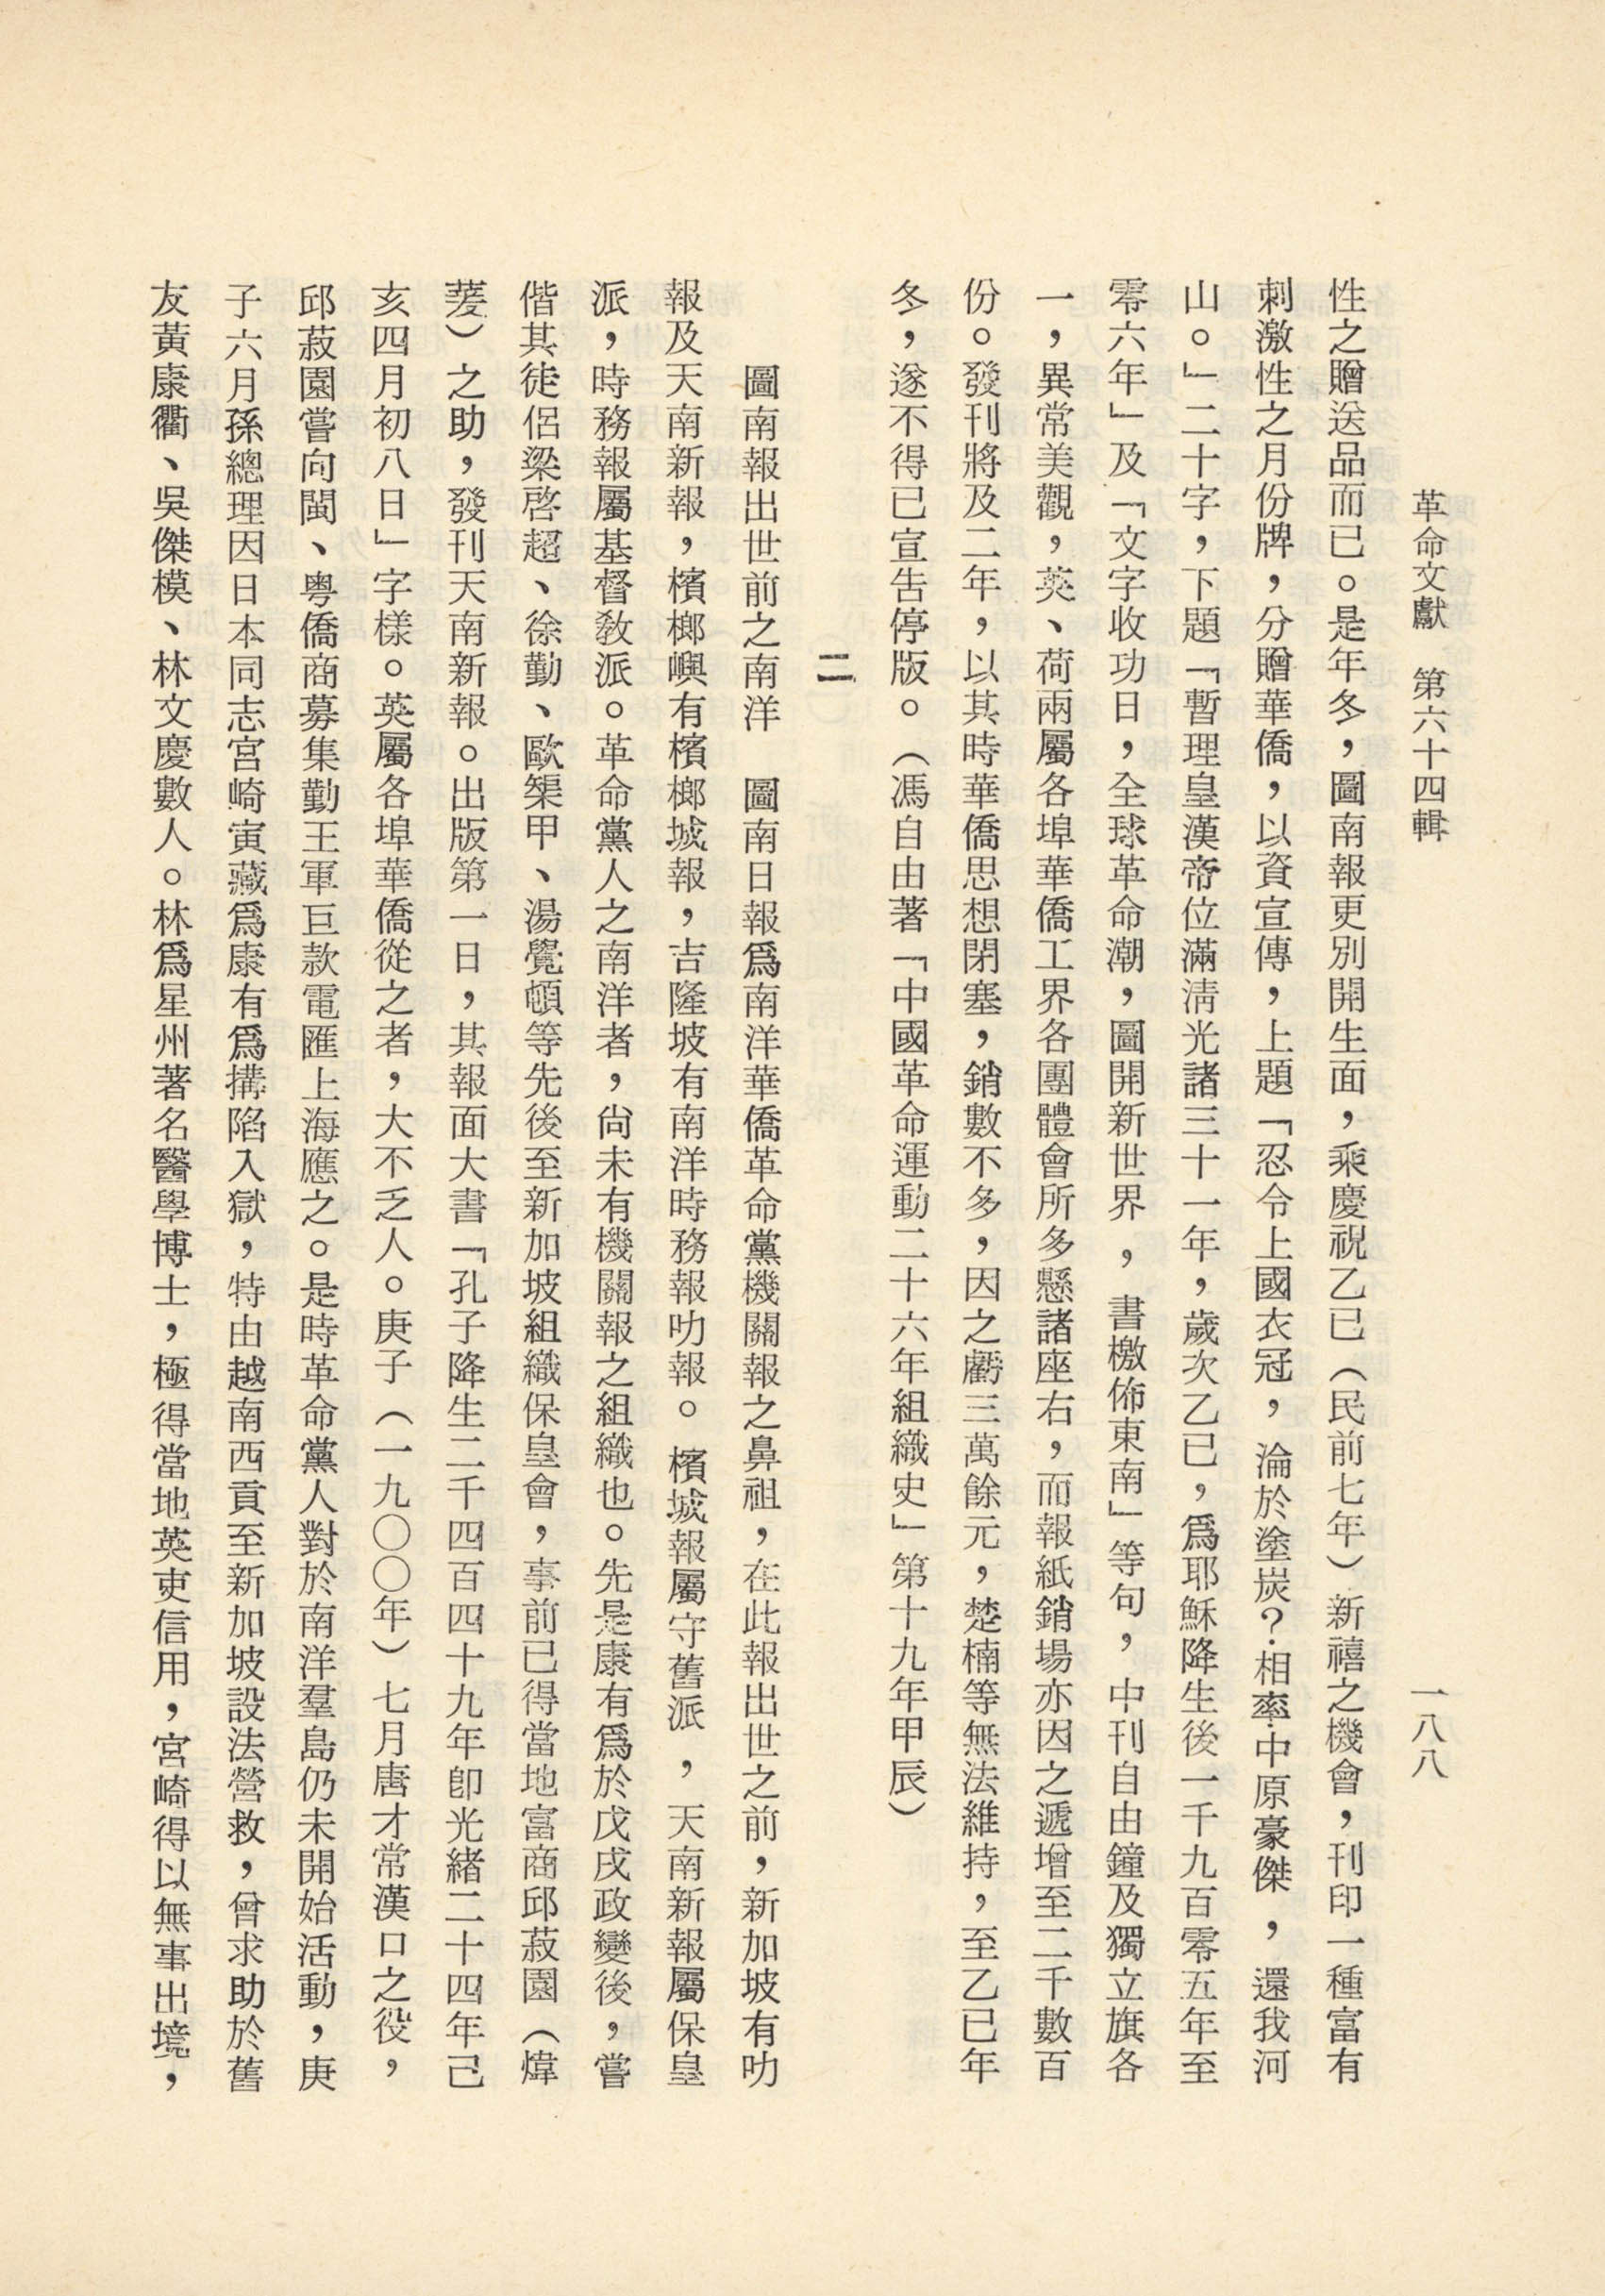 革命文獻　第六十四輯　一八八
性之贈送品而已。是年冬，圖南報更別開生面，乘慶祝乙巳（民前七年）新禧之機會，刊印一種富有
刺激性之月份牌，分贈華僑，以資宣傳，上題「忍令上國衣冠，淪於塗炭？相率中原豪傑，還我河
山。」二十字，下題「暫理皇漢帝位滿清光諸三十一年，歲次乙巳，爲耶穌降生後一千九百零五年至
零六年」及「文字收功日，全球革命潮，圖開新世界，書檄佈東南」等句，中刊自由鐘及獨立旗各
一，異常美觀，英、荷兩屬各埠華僑工界各團體會所多懸諸座右，而報紙銷場亦因之遞增至二千數百
份。發刊將及二年，以其時華僑思想閉塞，銷數不多，因之虧三萬餘元，楚楠等無法維持，至乙巳年
冬，遂不得已宣吿停版。（馮自由著「中國革命運動二十六年組織史」第十九年甲辰）
二
圖南報出世前之南洋　圖南日報爲南洋華僑革命黨機關報之鼻祖，在此報出世之前，新加坡有叻
報及天南新報，檳榔嶼有檳榔城報，吉隆坡有南洋時務報叻報。檳城報屬守舊派，天南新報屬保皇
派，時務報屬基督敎派。革命黨人之南洋者，尙未有機關報之組織也。先是康有爲於戊戌政變後，嘗
偕其徒侶梁啓超、徐勤、歐榘甲、湯覺頓等先後至新加坡組織保皇會，事前已得當地富商邱菽園（煒
萲）之助，發刊天南新報。出版第一日，其報面大書「孔子降生二千四百四十九年卽光緒二十四年己
亥四月初八日」字樣。英屬各埠華僑從之者，大不乏人。庚子（一九〇〇年）七月唐才常漢口之役，
邱菽園嘗向閩、粵僑商募集勤王軍巨款電匯上海應之。是時革命黨人對於南洋羣島仍未開始活動，庚
子六月孫總理因日本同志宮崎寅藏爲康有爲搆陷入獄，特由越南西貢至新加坡設法營救，曾求助於舊
友黃康衢、吳傑模、林文慶數人。林爲星州著名醫學博士，極得當地英吏信用，宮崎得以無事出境，